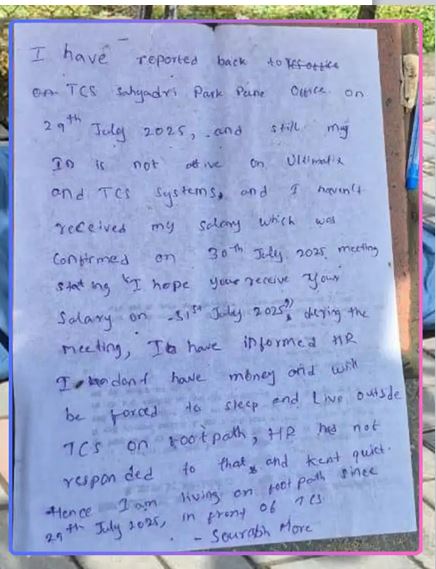 I have reported back to TCS office
on TCS Sahyadri Park Pune Office on
29th July 2025, and still my
ID is not ative on Ultimatix
and TCS systems, and I haven't
received my salary which was
confirmed on 30th July 2025 meeting
stating "I hope your receive your
salary on 31st July 2025", dering the
meeting, I have informed HR
I dont have money and will
be forced to sleep and live outside
TCS on footpath, HR has not
responded to that, and kept quiet.
Hence I am living on footpath since
29th July 2025, in front of TCS
- Sourabh More